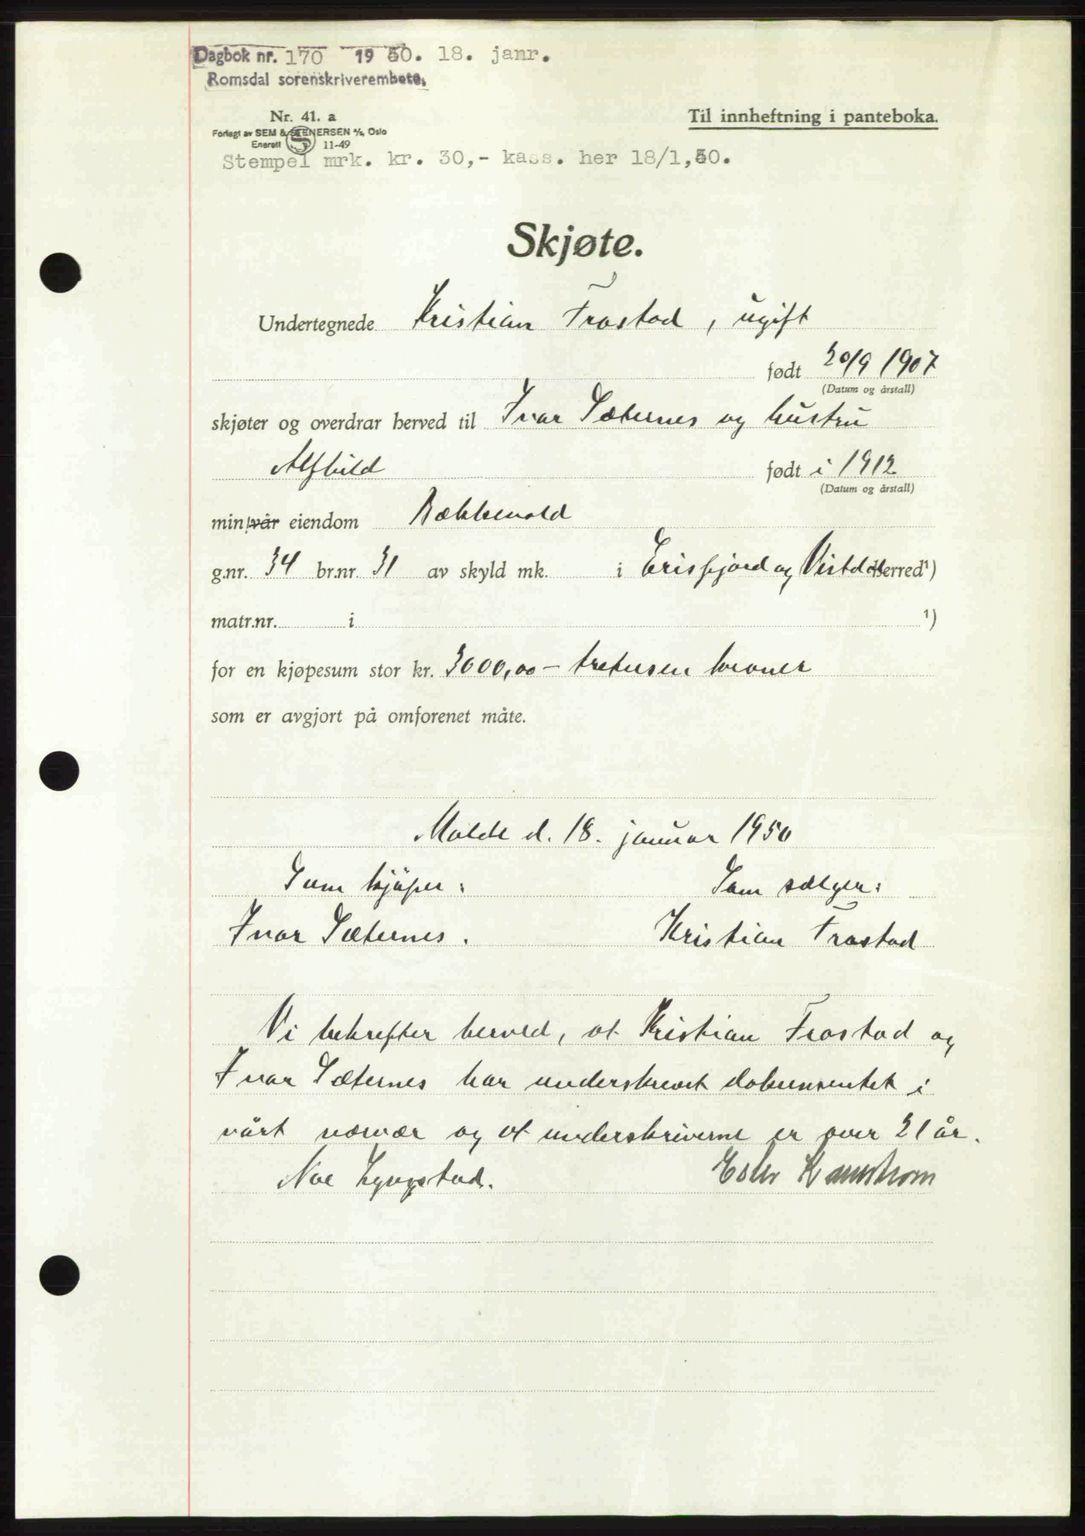 Dagbok nr. 170 1950. 18. janr.
Romsdal sorenskriverembete,
Nr. 41. a
Til innheftning i panteboka.
Forlagt av SEM & STENERSEN A/S, Oslo
Enerett S 11-49
Stempel mrk. kr. 30,- kass. her 18/1,50.
Skjøte.
Undertegnede Kristian Frostad, ugift
født 20/9 1907
(Datum og årstall)
skjøter og overdrar herved til Ivar Sæternes og hustru
Alfhild født i 1912
(Datum og årstall)
min/vår eiendom Bækkevold
g.nr. 34 br.nr. 31 av skyld mk. i Erisfjord og Vistdal herred¹)
matr.nr. i ¹)
for en kjøpesum stor kr. 3000,00 – tretusen kroner
som er avgjort på omforenet måte.
Molde d. 18. januar 1950
Som kjøper: Som sælger:
Ivar Sæternes. Kristian Frostad
Vi bekrefter herved, at Kristian Frostad og
Ivar Sæternes har underskrevet dokumentet i
vårt nærvær og at underskriverne er over 21 år.